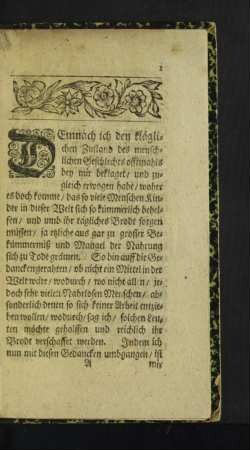 1
DEmnach ich den kläglichen Zustand des menschlichen Geschlechtes offtmahls
bey mir beklaget / und zugleich erwogen habe / woher
es doch komme / das so viele Menschen Kinder
in dieser Welt sich so kümmerlich behelfen /
und umb ihr tägliches Brodt sorgen
müssen / ja etzliche aus gar zu grosser Bekümmernüß
und Mangel der Nahrung
sich zu Tode grämen. So bin auff die Gedancken
gerahten / ob nicht ein Mittel in der
Welt wäre / wodurch / wo nicht allen / jedoch
sehr vielen Nahrlosen Menschen / absonderlich
denen so sich keiner Arbeit entziehen
wollen / wodurch / sag ich / solchen Leuten
möchte geholffen und reichlich ihr
Brodt verschaffet werden. Indem ich
nun mit diesen Gedancken umbgangen / ist
A mir